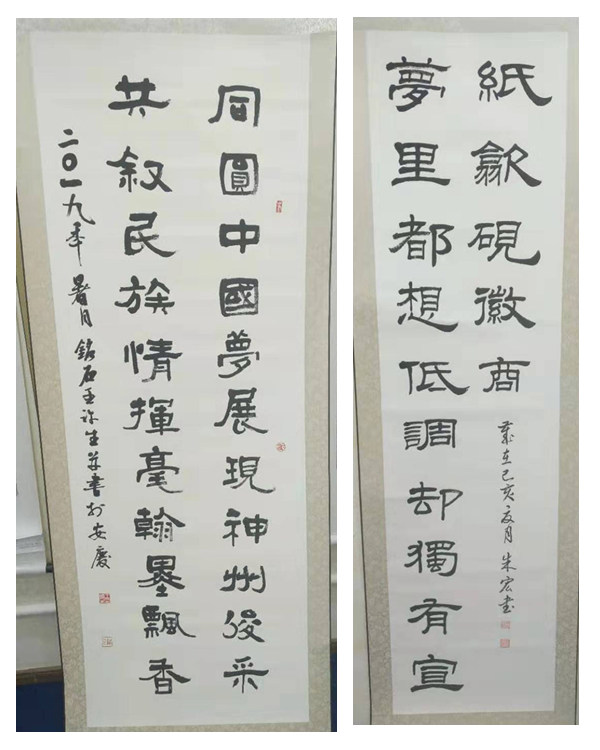 同圓中國夢展現神州俊采
共叙民族情揮毫翰墨飄香
二〇一九年暑月銘石王生並書於安慶
夢里都想低調却獨有宣
紙歙硯徽商
歲在己亥夏月朱宏書